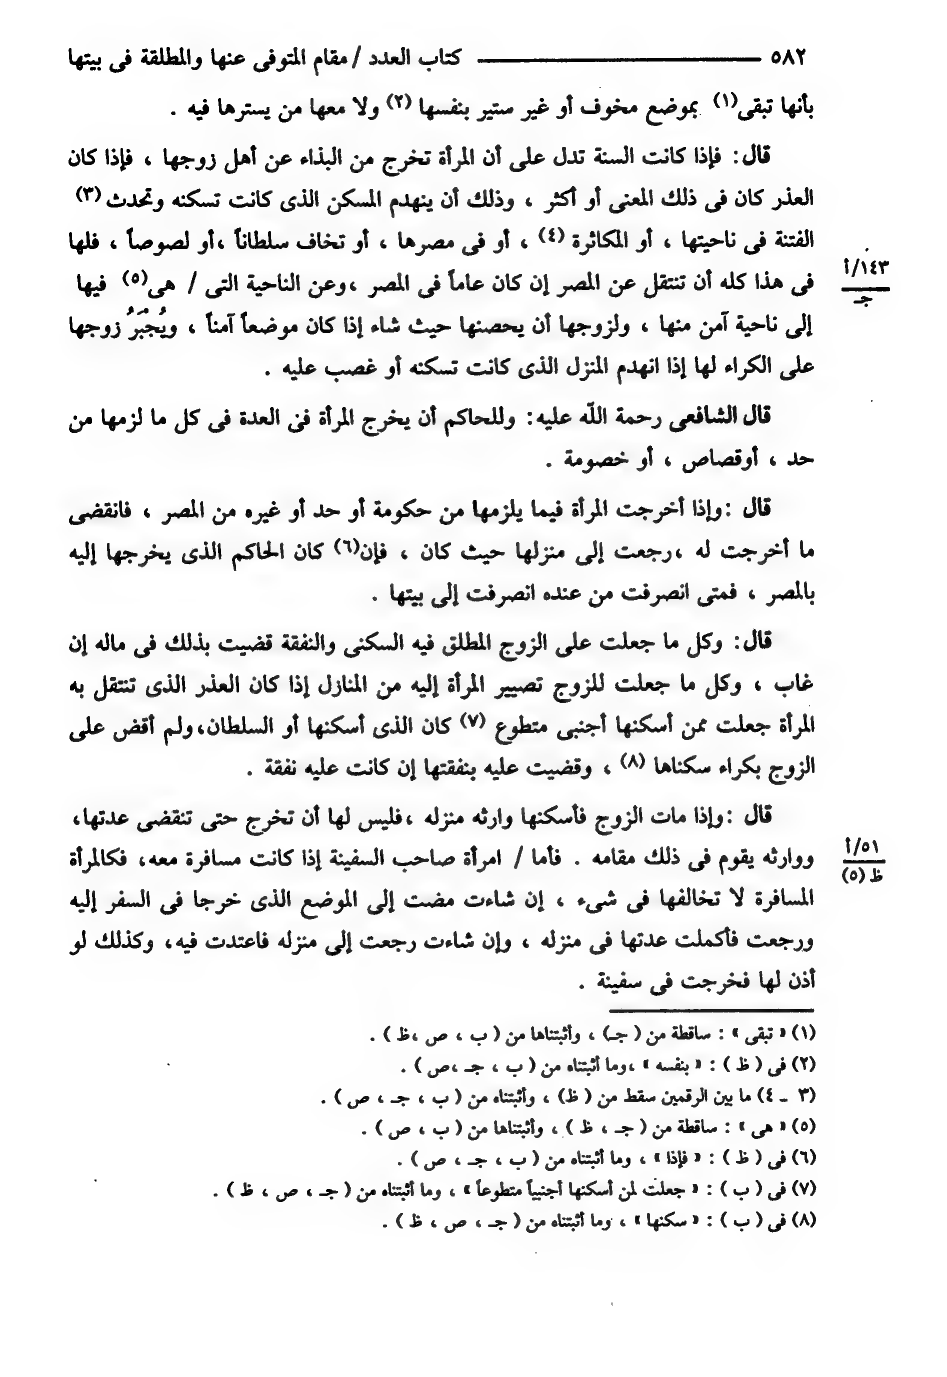 ٥٨٢ ــــــــــــــ كتاب العدد / مقام المتوفى عنها والمطلقة فى بيتها
بأنها تبقى(١) بموضع مخوف أو غير ستير بنفسها (٢) ولا معها من يسترها فيه .
قال: فإذا كانت السنة تدل على أن المرأة تخرج من البذاء عن أهل زوجها ، فإذا كان
العذر كان فى ذلك المعنى أو أكثر ، وذلك أن ينهدم المسكن الذى كانت تسكنه وتحدث (٣)
الفتنة فى ناحيتها ، أو المكاثرة (٤) ، أو فى مصرها ، أو تخاف سلطاناً ،أو لصوصاً ، فلها
١٤٣/أ
جـ
فى هذا كله أن تنتقل عن المصر إن كان عاماً فى المصر ،وعن الناحية التى / هى(٥) فيها
إلى ناحية آمن منها ، ولزوجها أن يحصنها حيث شاء إذا كان موضعاً آمناً ، ويُجْبَرُ زوجها
على الكراء لها إذا انهدم المنزل الذى كانت تسكنه أو غصب عليه .
قال الشافعى رحمة الله عليه: وللحاكم أن يخرج المرأة فى العدة فى كل ما لزمها من
حد ، أوقصاص ، أو خصومة .
قال :وإذا أخرجت المرأة فيما يلزمها من حكومة أو حد أو غيره من المصر ، فانقضى
ما أخرجت له ،رجعت إلى منزلها حيث كان ، فإن(٦) كان الحاكم الذى يخرجها إليه
بالمصر ، فمتى انصرفت من عنده انصرفت إلى بيتها .
قال: وكل ما جعلت على الزوج المطلق فيه السكنى والنفقة قضيت بذلك فى ماله إن
غاب ، وكل ما جعلت للزوج تصيير المرأة إليه من المنازل إذا كان العذر الذى تنتقل به
المرأة جعلت ممن أسكنها أجنبى متطوع (٧) كان الذى أسكنها أو السلطان،ولم أقض على
الزوج بكراء سكناها (٨) ، وقضيت عليه بنفقتها إن كانت عليه نفقة .
قال :وإذا مات الزوج فأسكنها وارثه منزله ،فليس لها أن تخرج حتى تنقضى عدتها،
٥١/أ
ظ (٥)
ووارثه يقوم فى ذلك مقامه . فأما / امرأة صاحب السفينة إذا كانت مسافرة معه، فكالمرأة
المسافرة لا تخالفها فى شىء ، إن شاءت مضت إلى الموضع الذى خرجا فى السفر إليه
ورجعت فأكملت عدتها فى منزله ، وإن شاءت رجعت إلى منزله فاعتدت فيه، وكذلك لو
أذن لها فخرجت فى سفينة .
(١) « تبقى » : ساقطة من ( جـ) ، وأثبتناها من ( ب ، ص ،ظ ) .
(٢) فى ( ظ ) : « بنفسه » ،وما أثبتناه من ( ب ، جـ ،ص ) .
(٣ ـ ٤) ما بين الرقمين سقط من ( ظ) ، وأثبتناه من ( ب ، جـ ، ص ) .
(٥) « هى » : ساقطة من ( جـ ، ظ ) ، وأثبتناها من ( ب ، ص ) .
(٦) فى ( ظ ) : « فإذا » ، وما أثبتناه من ( ب ، جـ ، ص ) .
(٧) فى ( ب ) : « جعلت لمن أسكنها أجنبياً متطوعاً » ، وما أثبتناه من ( جـ ، ص ، ظ ) .
(٨) فى ( ب ) : « سكنها » ، وما أثبتناه من ( جـ ، ص ، ظ ) .